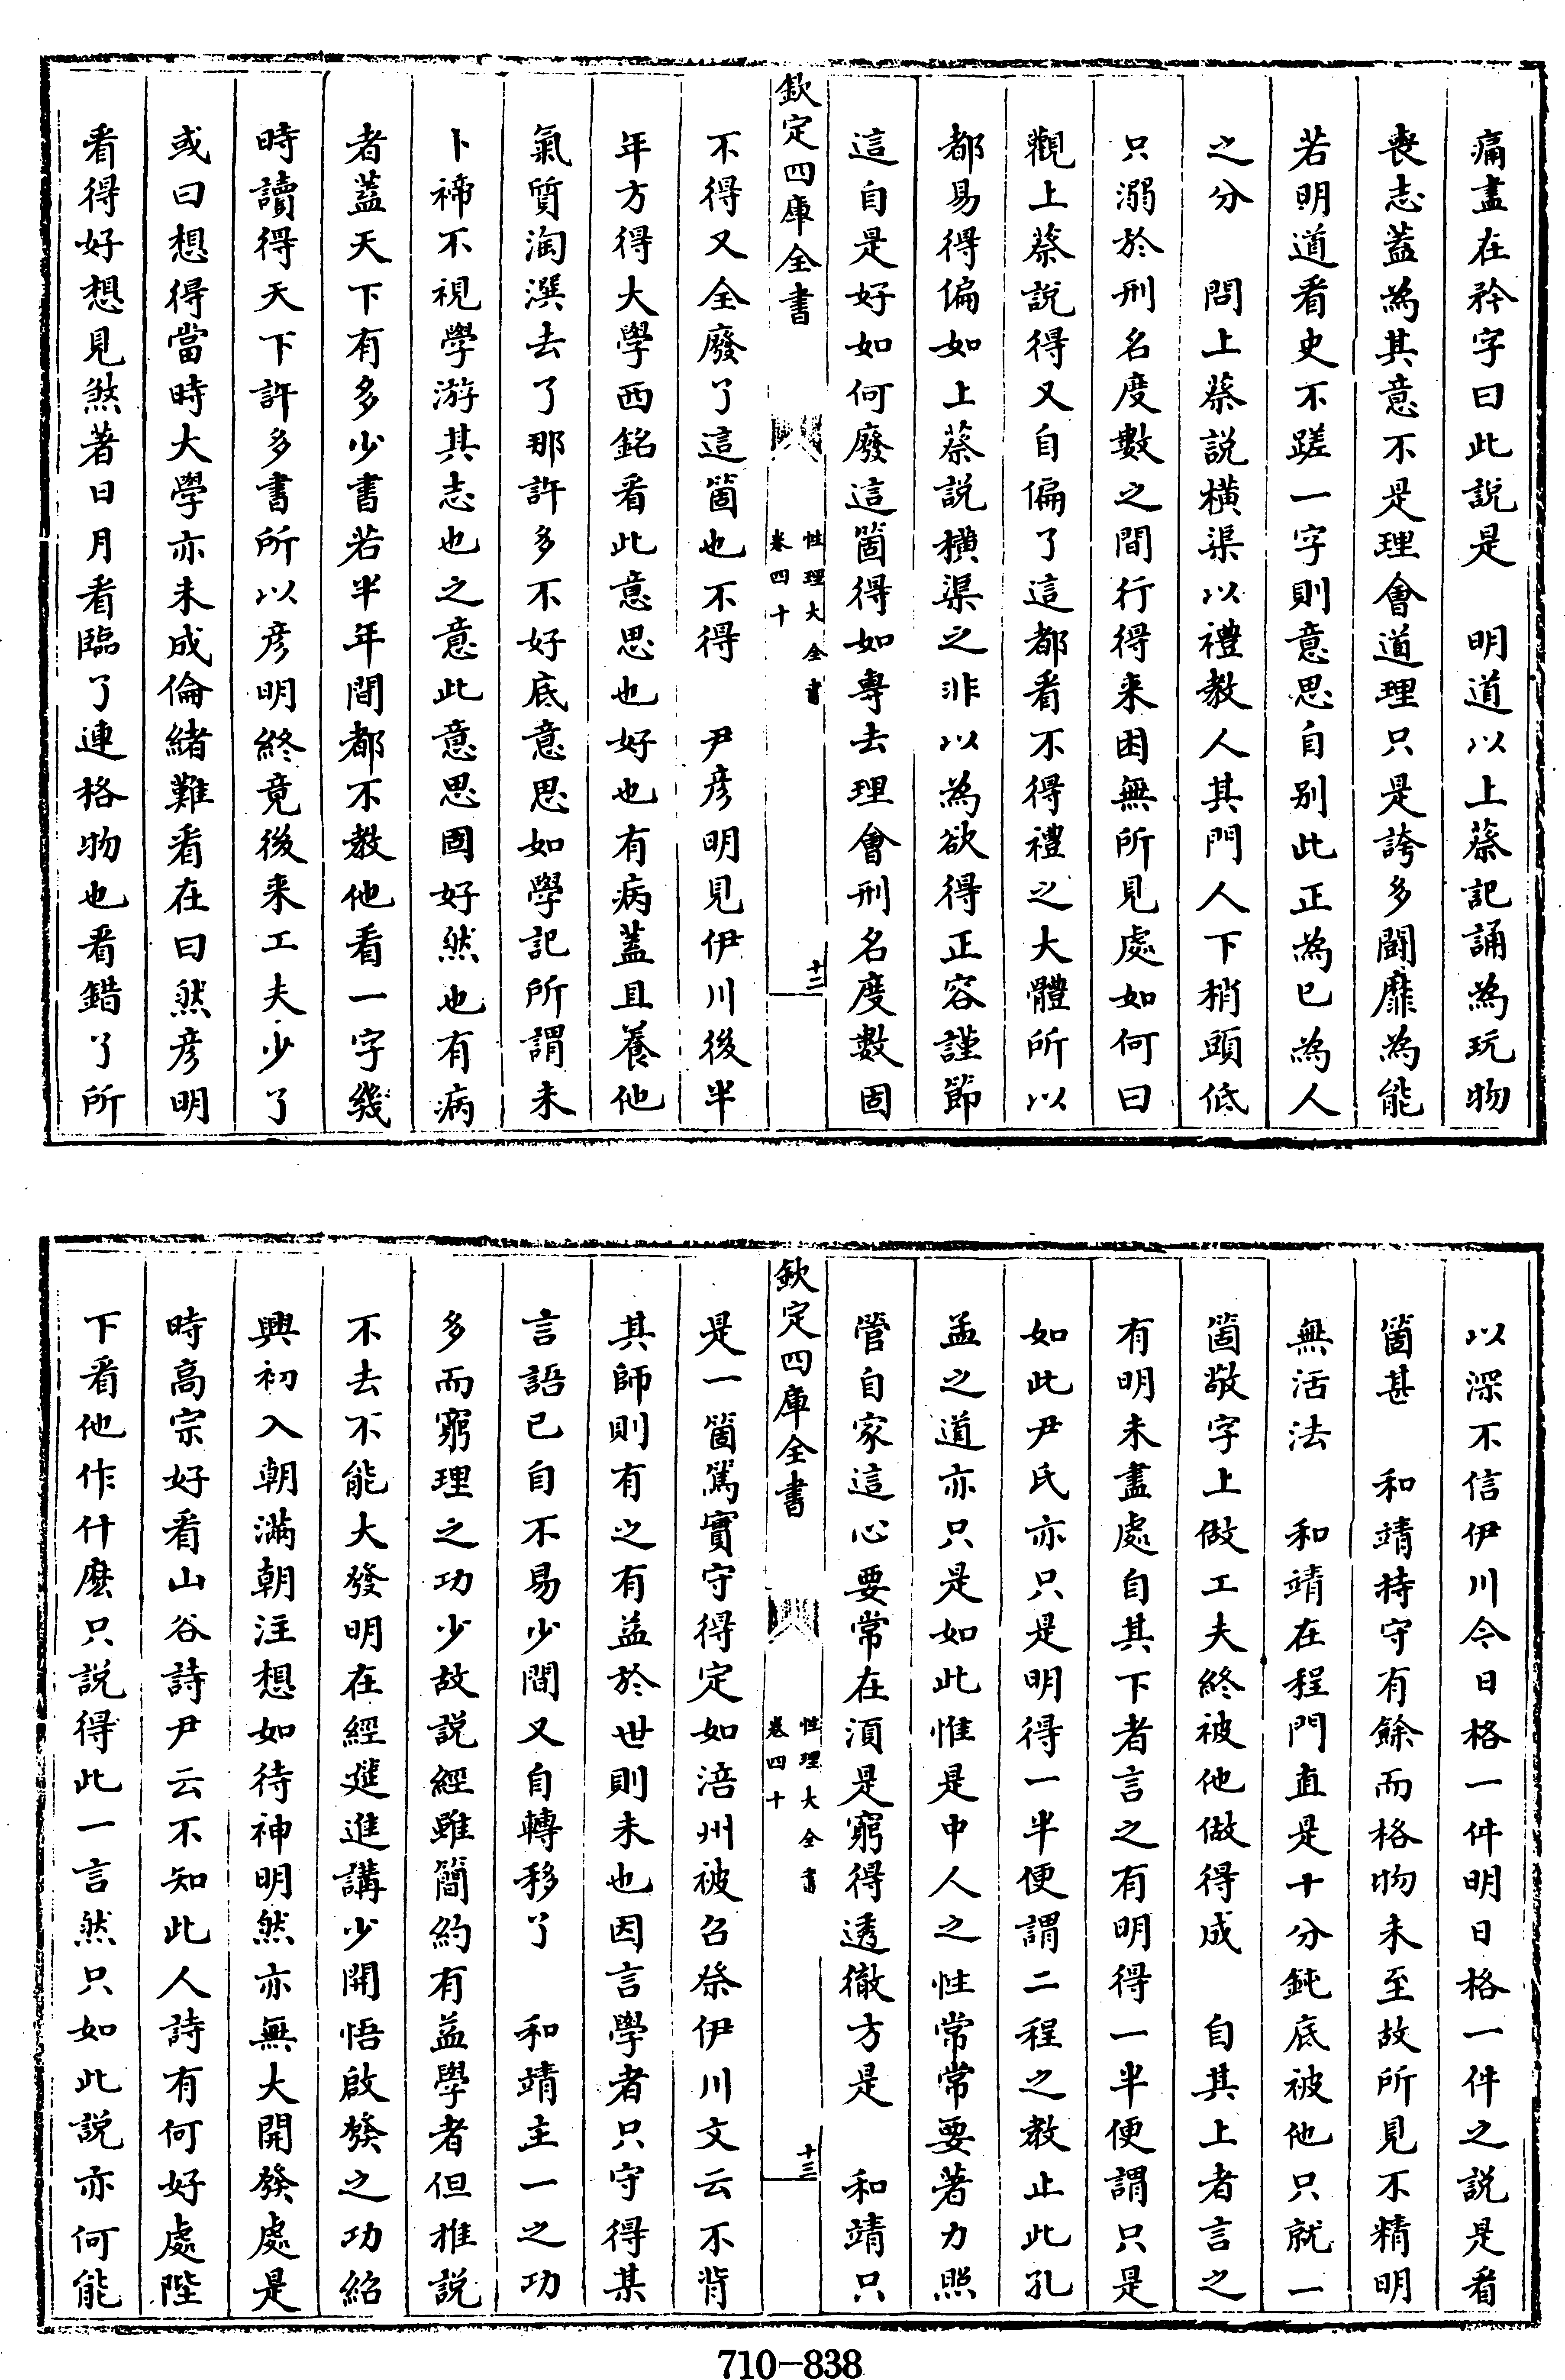 痛盡在矜字曰此説是　明道以上蔡記誦為玩物
喪志蓋為其意不是理會道理只是誇多鬬靡為能
若明道看史不蹉一字則意思自别此正為已為人
之分　問上蔡説横渠以禮教人其門人下稍頭低
只溺於刑名度數之間行得來困無所見處如何曰
觀上蔡說得又自偏了這都看不得禮之大體所以
都易得偏如上蔡説横渠之非以為欲得正容謹節
這自是好如何廢這箇得如專去理會刑名度數固
欽定四庫全書
性理大全書
卷四十
十三
不得又全廢了這箇也不得　尹彦明見伊川後半
年方得大學西銘看此意思也好也有病蓋且養他
氣質淘潠去了那許多不好底意思如學記所謂未
卜禘不視學游其志也之意此意思固好然也有病
者蓋天下有多少書若半年間都不教他看一字幾
時讀得天下許多書所以彦明終竟後來工夫少了
或曰想得當時大學亦未成倫緒難看在曰然彦明
看得好想見煞著日月看臨了連格物也看錯了所
以深不信伊川今日格一件明日格一件之説是看
箇甚　和靖持守有餘而格物未至故所見不精明
無活法　和靖在程門直是十分鈍底被他只就一
箇敬字上做工夫終被他做得成　自其上者言之
有明未盡處自其下者言之有明得一半便謂只是
如此尹氏亦只是明得一半便謂二程之教止此孔
孟之道亦只是如此惟是中人之性常常要著力照
管自家這心要常在湏是窮得透徹方是　和靖只
欽定四庫全書
性理大全書
卷四十
十三
是一箇篤實守得定如涪州被召祭伊川文云不背
其師則有之有益於世則未也因言學者只守得某
言語已自不易少間又自轉移了　和靖主一之功
多而窮理之功少故説經雖簡約有益學者但推説
不去不能大發明在經筵進講少開悟啟發之功紹
興初入朝滿朝注想如待神明然亦無大開發處是
時高宗好看山谷詩尹云不知此人詩有何好處陛
下看他作什麽只説得此一言然只如此説亦何能
710-838